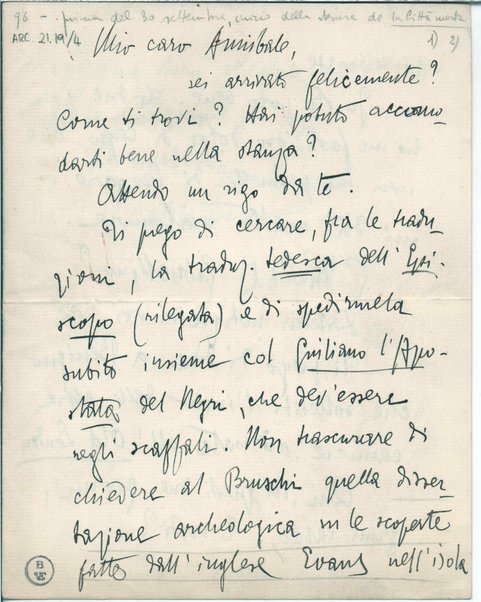 96 - prima del 30 settembre, inizio della stesura de La Città morta
ARC. 21.19/4
1) 2)
Mio caro Annibale,
sei arrivato felicemente?
Come ti trovi? Hai potuto accomo-
darti bene nella stanza?
Attendo un rigo da te.
Ti prego di cercare, fra le tradu-
zioni, la traduz. tedesca dell'Epi-
scopo (rilegata) e di spedirmela
subito insieme col Giuliano l'Apo-
stata del Negri, che dev'essere
negli scaffali. Non trascurare di
chiedere al Bruschi quella disser-
tazione archeologica su le scoperte
fatte dall'inglese Evans nell'isola